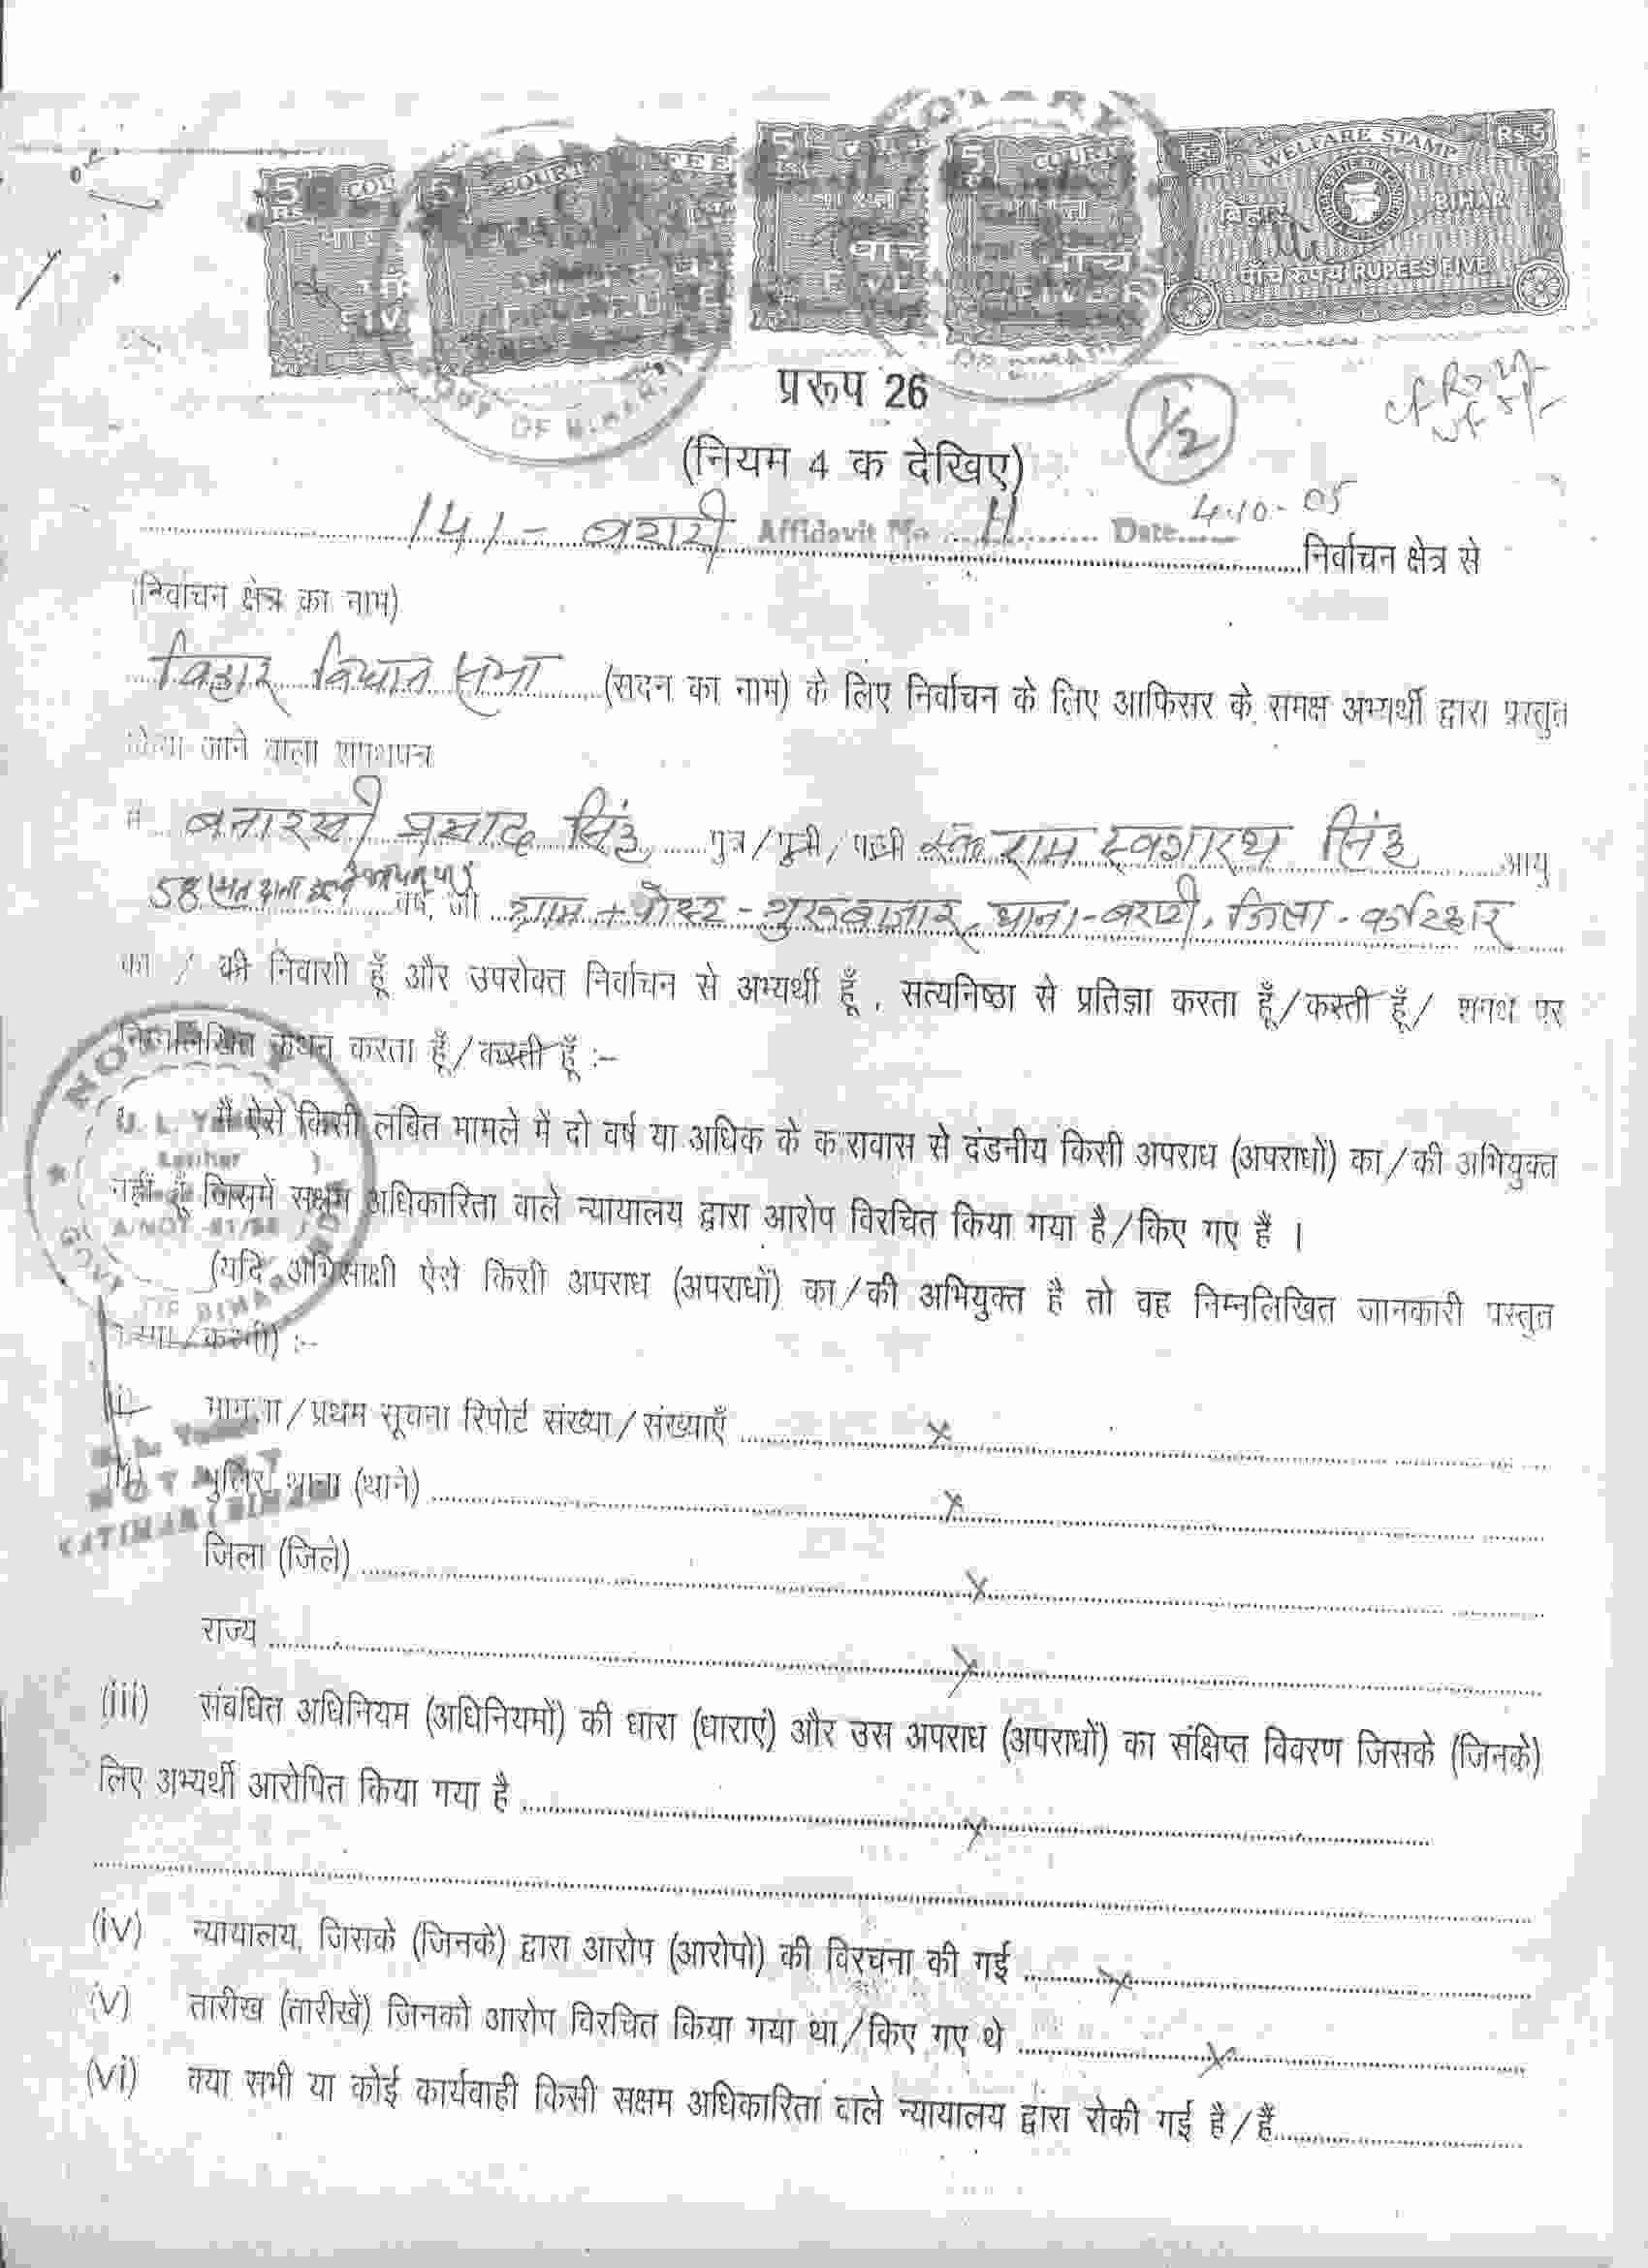 5 Rs COU 5 COURT FEE 5 5 COURT WELFARE STAMP Rs 5
बिहार BIHAR
पाँच रूपये RUPEES FIVE
प्ररूप 26
1/2
(नियम 4 क देखिए)
141 - बरारी Affidavit No. 11 Date 4-10-05 निर्वाचन क्षेत्र से
(निर्वाचन क्षेत्र का नाम)
बिहार विधान सभा (सदन का नाम) के लिए निर्वाचन के लिए आफिसर के समक्ष अभ्यर्थी द्वारा प्रस्तुत
किया जाने वाला शपथपत्र
मैं बनारसी प्रसाद सिंह पुत्र/पुत्री/पत्नी स्व० राम स्वारथ सिंह आयु
58 वर्ष, जो ग्राम + पोस्ट - गुरूबाजार, थाना - बरारी, जिला - कटिहार
का / की निवासी हूँ और उपरोक्त निर्वाचन से अभ्यर्थी हूँ , सत्यनिष्ठा से प्रतिज्ञा करता हूँ/करती हूँ/ शपथ पर
निम्नलिखित कथन करता हूँ/करती हूँ :-
मैं ऐसे किसी लंबित मामले में दो वर्ष या अधिक के कारावास से दंडनीय किसी अपराध (अपराधों) का/की अभियुक्त
नहीं हूँ जिसमें सक्षम अधिकारिता वाले न्यायालय द्वारा आरोप विरचित किया गया है/किए गए हैं ।
(यदि अभिसाक्षी ऐसे किसी अपराध (अपराधों) का/की अभियुक्त है तो वह निम्नलिखित जानकारी प्रस्तुत
करेगा/करेगी) :-
(i) मामला/प्रथम सूचना रिपोर्ट संख्या/संख्याएँ x
(ii) पुलिस थाना (थाने) x
NOTARY
KATIHAR (BIHAR)
जिला (जिले) x
राज्य x
(iii) संबंधित अधिनियम (अधिनियमों) की धारा (धाराएं) और उस अपराध (अपराधों) का संक्षिप्त विवरण जिसके (जिनके)
लिए अभ्यर्थी आरोपित किया गया है x
(iv) न्यायालय, जिसके (जिनके) द्वारा आरोप (आरोपो) की विरचना की गई x
(v) तारीख (तारीखें) जिनको आरोप विरचित किया गया था/किए गए थे x
(vi) क्या सभी या कोई कार्यवाही किसी सक्षम अधिकारिता वाले न्यायालय द्वारा रोकी गई है/हैं